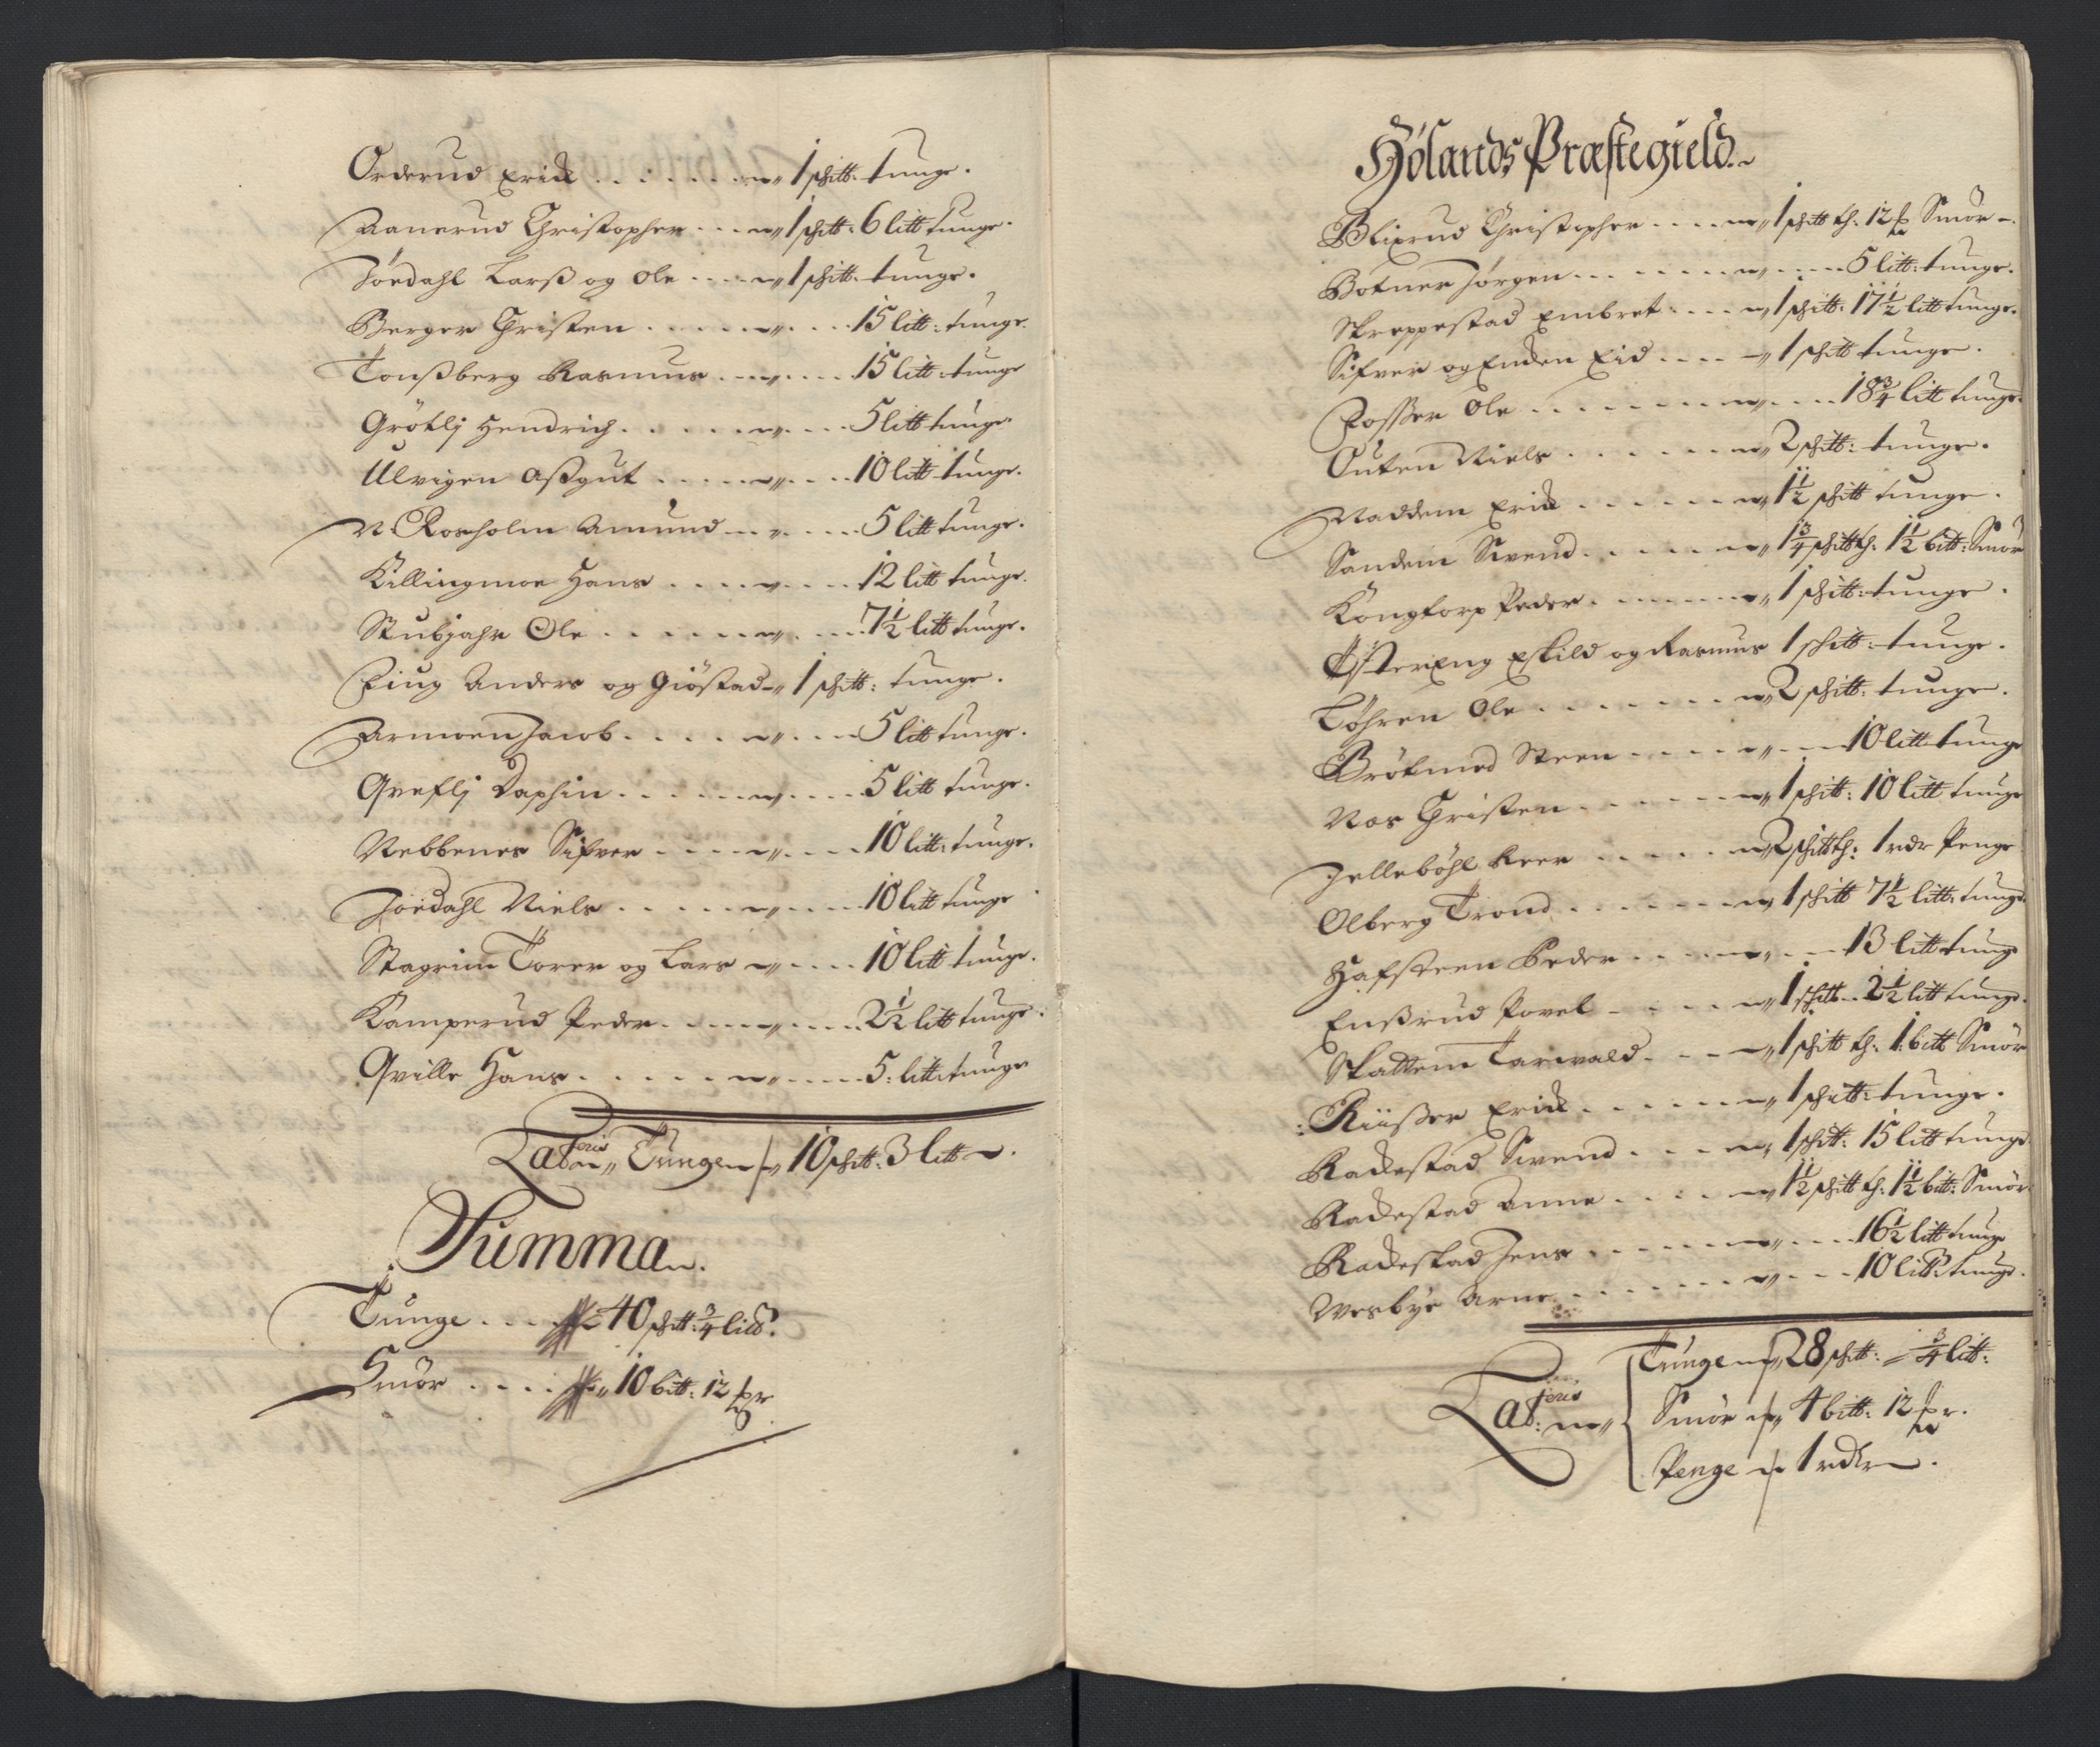 Orderud Erick . . . . . . . 1 schitt: tunge.
Aanerud Christopher . . . 1 schitt: 6 litt tunge.
Joedahl Larß og Ole . . . . 1 schitt: tunge.
Berger Christen . . . . . . . . 15 litt: tunge.
Tonßberg Rasmus . . . . . . . 15 litt: tunge
Grötlj Hendrich . . . . . . . . 5 litt tunge.
Ulvigen Aßgut . . . . . . . . 10 litt tunge.
N: Roesholm Amund . . . . . . 5 litt tunge.
Killingmoe Hans . . . . . . . . 12 litt tunge.
Stubjahr Ole . . . . . . . . 7½ litt tunge.
Fiug Anders og Giöstad 1 schitt: tunge.
Armoen Jacob . . . . . . . . 5 litt tunge.
Greflj Daphin . . . . . . . . 5 litt tunge.
Nebbenes Sifver . . . . . . . . 10 litt: tunge.
Joedahl Niels . . . . . . . . 10 litt tunge
Stagrim Torer og Lars . . . . 10 litt tunge.
Kamperud Peder . . . . . . . . 2½ litt tunge:
Qville Hans . . . . . . . . 5: litt: tunge
Lat:eris Tunge 10 schitt: 3 litt
Summa.
Tunge . . . 40 schitt: ¾ litt.
Smör . . . . 10 bitt: 12
Hölands Præstegield.
Blixrud Christopher . . . . 1 schitt th: 12 Smör
Botner Jörgen . . . . . . . . 5 litt: tunge.
Skreppestad Embret . . . . 1 schitt: 17½ litt tunge.
Sifver og Enden Eid . . . . 1 schitt tunge.
Fosser Ole . . . . . . . . 18¾ litt tunge.
Outen Niels . . . . . . . 2 schitt: tunge.
Naddem Erick . . . . . . . 1½ schitt tunge.
Sandem Svend . . . . . . 1¾ schitt th: 1½ bitt: Smör
Kongtorp Peder . . . . . . 1 schitt: tunge.
Östereng Eskild og Rasmus 1 schitt: tunge.
Töhren Ole . . . . . . . 2 schitt: tunge.
Brötmed Steen . . . . . . . . 10 litt tunge
Nas Christen . . . . . . . 1 schitt: 10 litt tunge
Jelleböhl Peer . . . . . . 2 schitt th: 1 rdr Penge
Olberg Trond . . . . . . . 1 schitt 7½ litt: tunge.
Hafsteen Peder . . . . . . . . 13 litt tunge
Enßrud Povel . . . . . . 1 schitt: 2½ litt tunge.
Skattem Tarvald . . . . 1 schitt th: 1 bitt Smör
Riißer Erick . . . . . . 1 schitt: tunge.
Rackestad Svend . . . . 1 schitt: 15 litt tunge.
Rackestad Anne . . . . 1½ schitt th: 1½ bitt: Smör
Rackestad Jens . . . . . . . . 16½ litt tunge
Wesbye Arne . . . . . . . . 10 litt: tunge.
Lat:eris
Tunge 28 schitt: ¾ litt:
Smör 4 bitt: 12
Penge 1 rdlr.